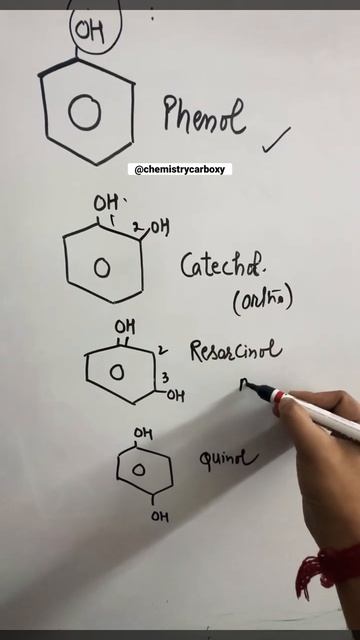 OH
Phenol
@chemistrycarboxy
OH
1
2 OH
Catechol.
(ortho)
OH
1
2
Resorcinol
3
OH
OH
Quinol
OH